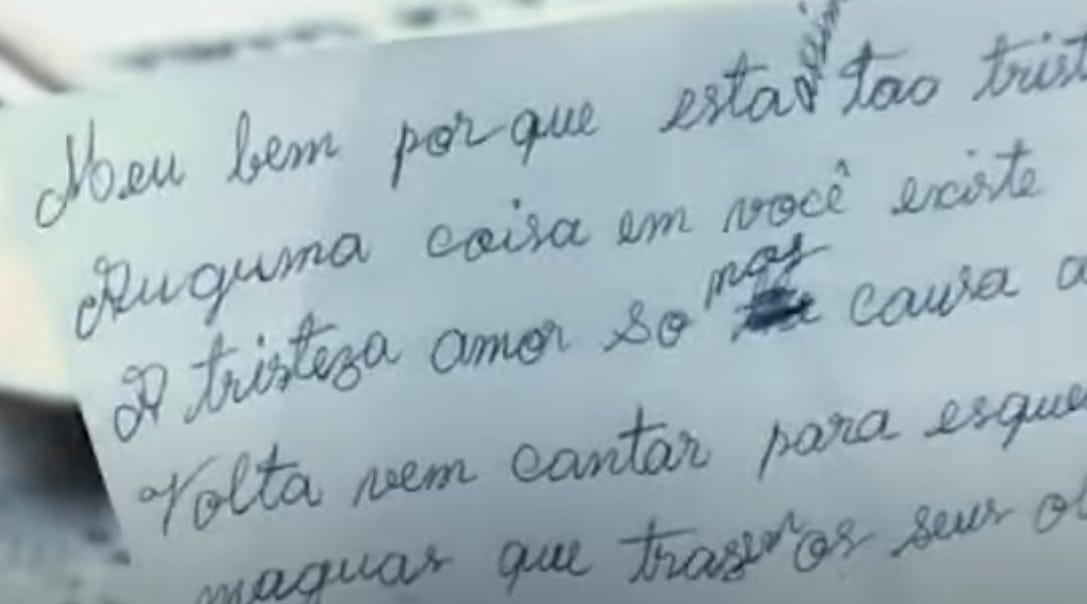 Meu bem porque esta assim tao trist
Auguma coisa em você existe
A tristeza amor so nos causa a
Volta vem cantar para esque
maguas que tras nos seus ol